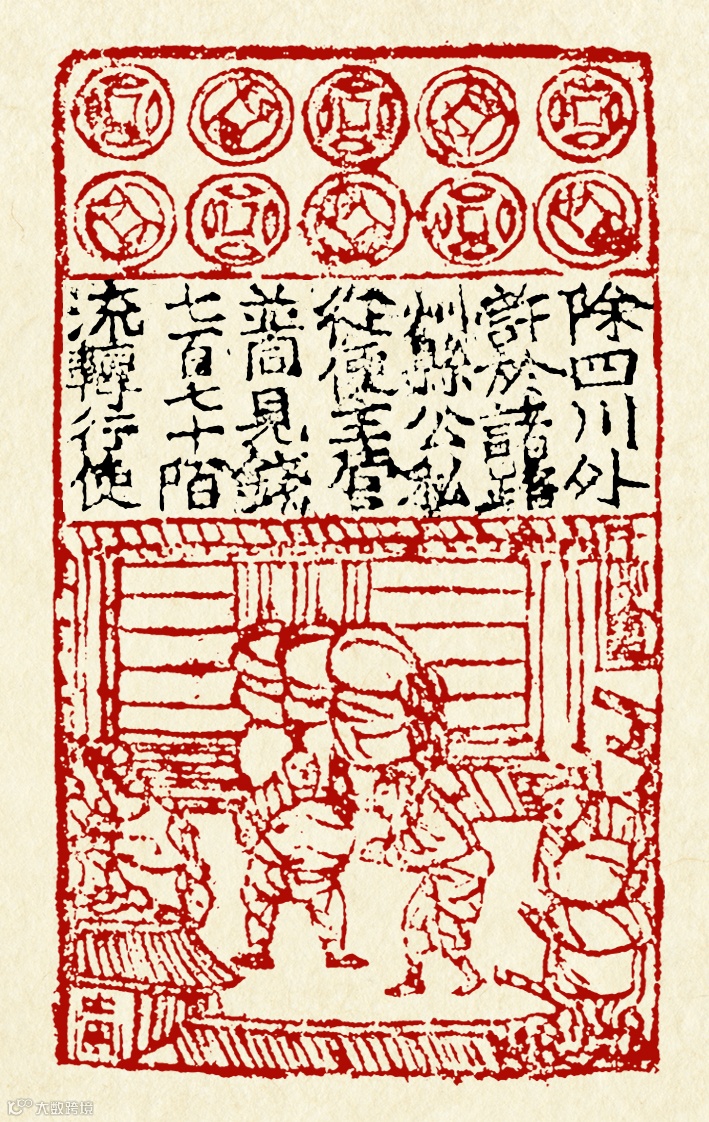 除四川外
許於諸路
州縣公私
從便主管
並同見錢
七百七十陌
流轉行使
大数跨境